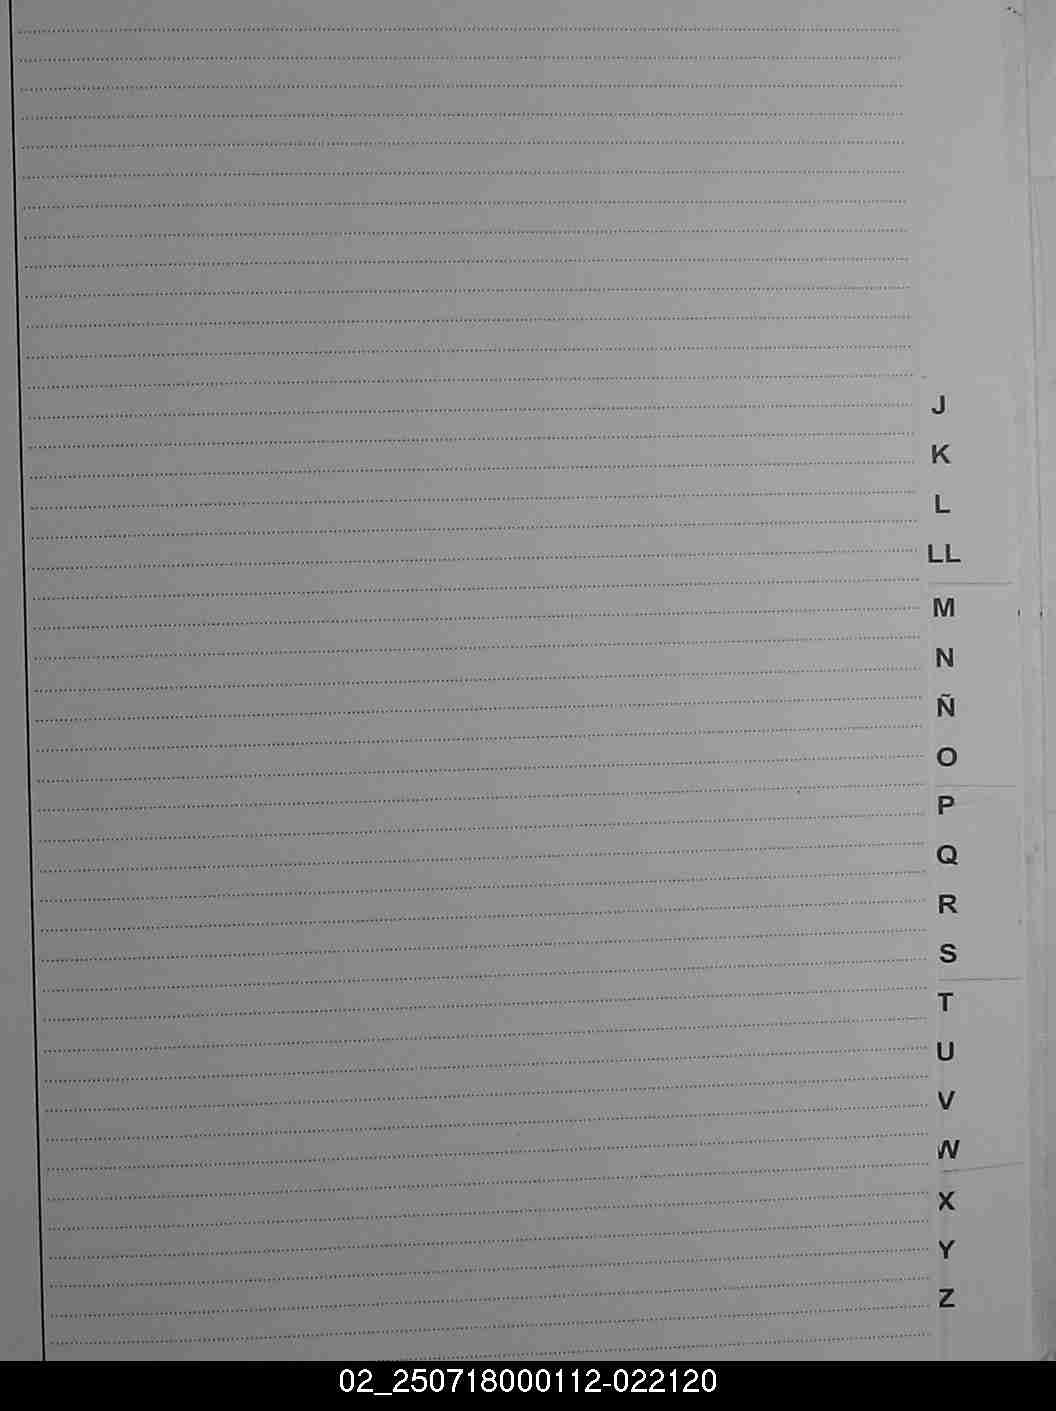 J
K
L
LL
M
N
Ñ
O
P
Q
R
S
T
U
V
W
X
Y
Z
02_250718000112-022120